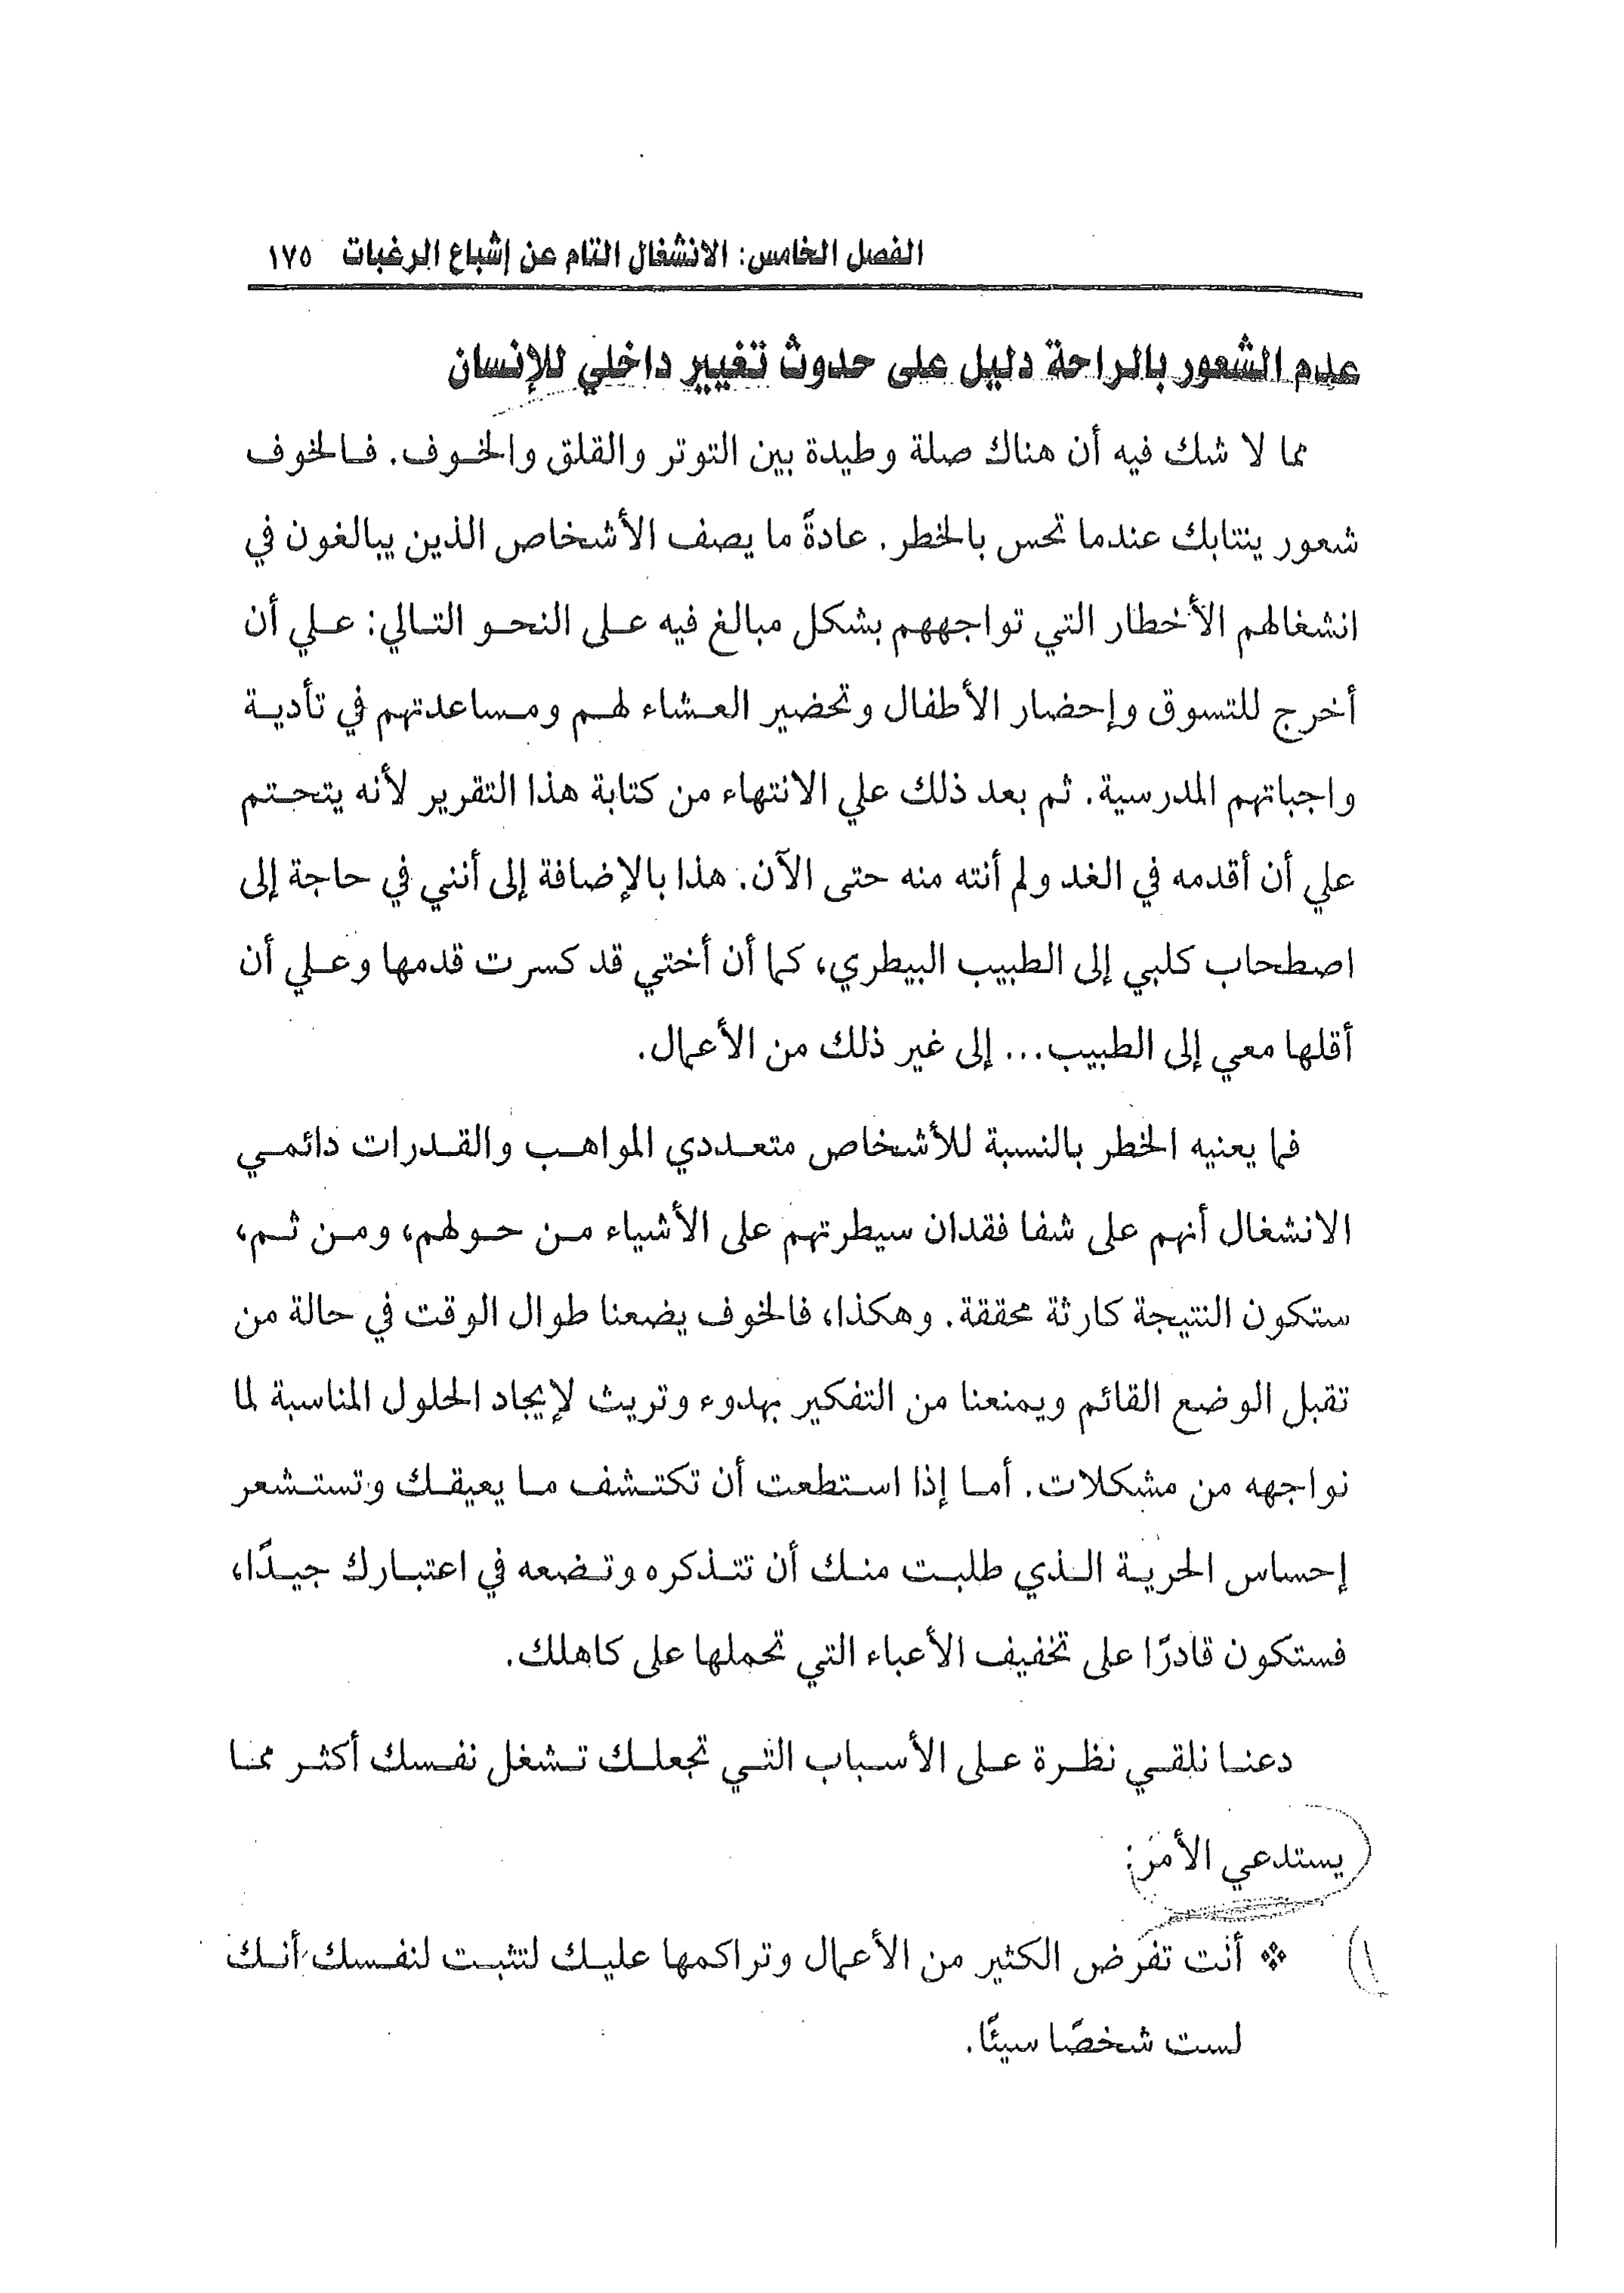 الفصل الخامس: الانشغال التام عن إشباع الرغبات ١٧٥
عدم الشعور بالراحة دليل على حدوث تغيير داخلي للإنسان
مما لا شك فيه أن هناك صلة وطيدة بين التوتر والقلق والخوف. فالخوف
شعور ينتابك عندما تحس بالخطر. عادةً ما يصف الأشخاص الذين يبالغون في
انشغالهم الأخطار التي تواجههم بشكل مبالغ فيه على النحو التالي: علي أن
أخرج للتسوق وإحضار الأطفال وتحضير العشاء لهم ومساعدتهم في تأدية
واجباتهم المدرسية. ثم بعد ذلك علي الانتهاء من كتابة هذا التقرير لأنه يتحتم
علي أن أقدمه في الغد ولم أنته منه حتى الآن. هذا بالإضافة إلى أنني في حاجة إلى
اصطحاب كلبي إلى الطبيب البيطري، كما أن أختي قد كسرت قدمها وعلي أن
أقلها معي إلى الطبيب... إلى غير ذلك من الأعمال.
فما يعنيه الخطر بالنسبة للأشخاص متعددي المواهب والقدرات دائمي
الانشغال أنهم على شفا فقدان سيطرتهم على الأشياء من حولهم، ومن ثم،
ستكون النتيجة كارثة محققة. وهكذا، فالخوف يضعنا طوال الوقت في حالة من
تقبل الوضع القائم ويمنعنا من التفكير بهدوء وتريث لإيجاد الحلول المناسبة لما
نواجهه من مشكلات. أما إذا استطعت أن تكتشف ما يعيقك وتستشعر
إحساس الحرية الذي طلبت منك أن تتذكره وتضعه في اعتبارك جيدًا،
فستكون قادرًا على تخفيف الأعباء التي تحملها على كاهلك.
دعنا نلقي نظرة على الأسباب التي تجعلك تشغل نفسك أكثر مما
يستدعي الأمر:
١) ❖ أنت تفرض الكثير من الأعمال وتراكمها عليك لتثبت لنفسك أنك
لست شخصًا سيئًا.